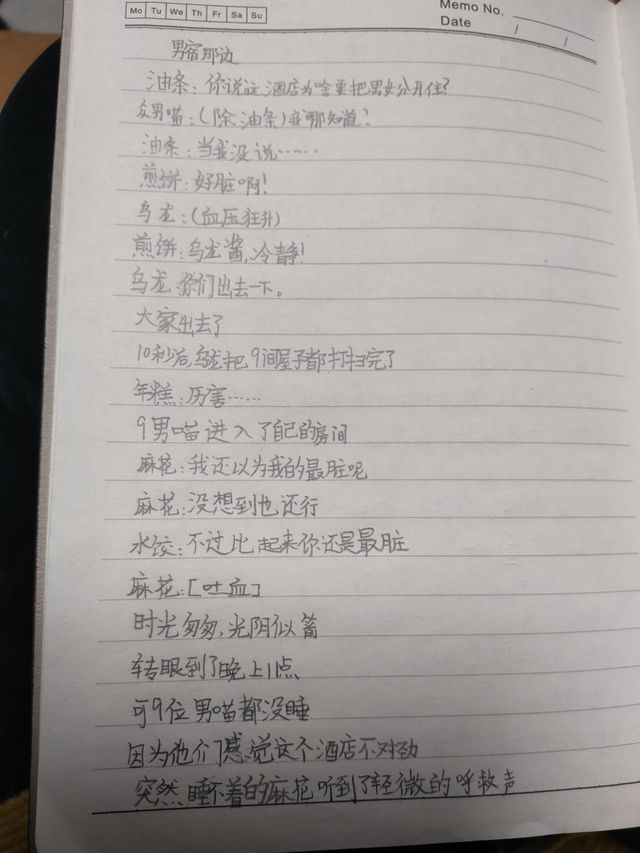 Mo Tu We Th Fr Sa Su
Memo No.
Date / /
男宿那边
油条:你说这酒店为啥要把男女分开住?
众男喵:(除油条)我哪知道?
油条:当我没说……
煎饼:好脏啊!
乌龙:(血压狂升)
煎饼:乌龙酱,冷静!
乌龙 你们出去一下。
大家出去了
10秒后,乌龙把9间屋子都打扫完了
年糕:厉害……
9男喵进入了自己的房间
麻花:我还以为我的最脏呢
麻花:没想到也还行
水饺:不过比起来你还是最脏
麻花:[吐血]
时光匆匆,光阴似箭
转眼到了晚上11点
可9位男喵都没睡
因为他们感觉这个酒店不对劲
突然睡不着的麻花听到了轻微的呼救声